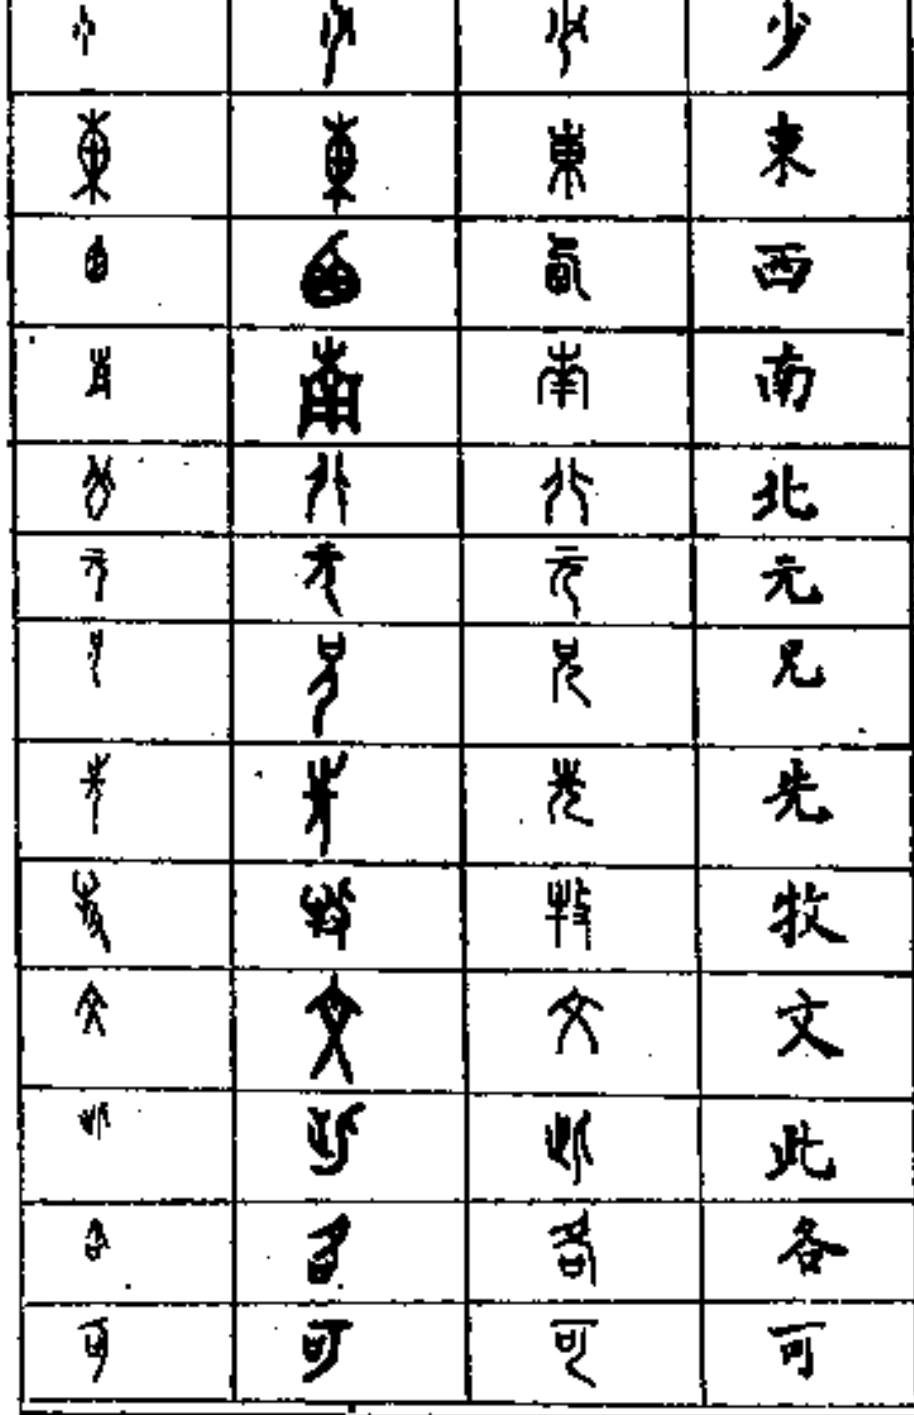 少 少 少 少
東 東 東 東
西 西 西 西
南 南 南 南
北 北 北 北
元 元 元 元
兄 兄 兄 兄
先 先 先 先
牧 牧 牧 牧
文 文 文 文
此 此 此 此
各 各 各 各
可 可 可 可